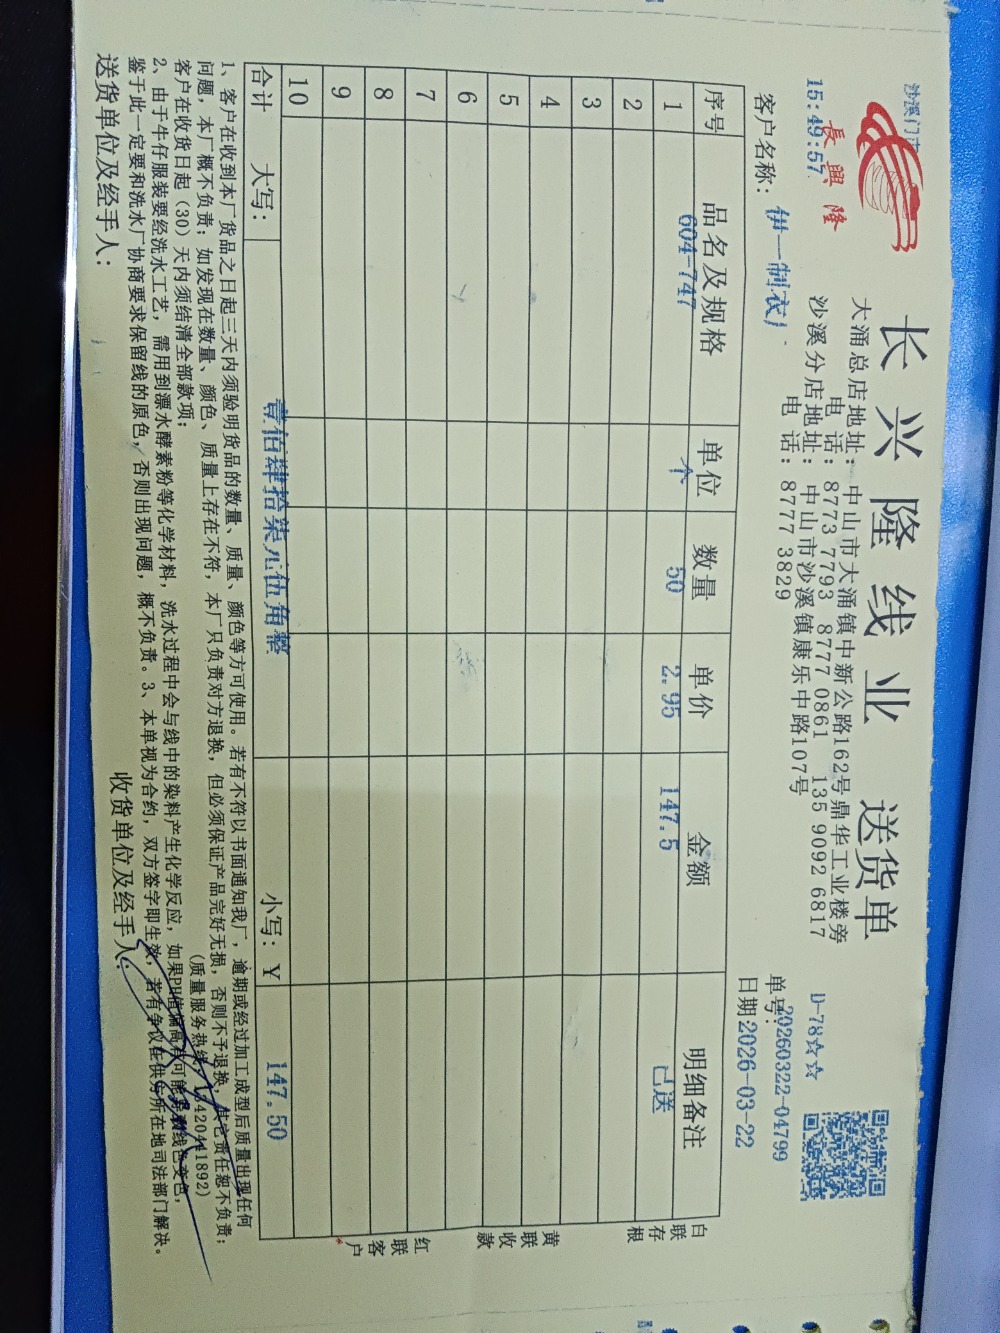 沙溪门市
長興隆
15:49:57
长兴隆线业 送货单
大涌总店地址：中山市大涌镇中新公路162号鼎华工业楼旁
电 话：8773 7793 8777 0861 135 9092 6817
沙溪分店地址：中山市沙溪镇康乐中路107号
电 话：8777 3829
D-78☆☆
单号:20260322-04799
客户名称：伊一制衣厂
日期:2026-03-22
序号 品名及规格 单位 数量 单价 金额 明细备注
1 604-747 个 50 2.95 147.5 已送
2
3
4
5
6
7
8
9
10
合计 大写： 壹佰肆拾柒元伍角整 小写：￥ 147.50
白联存根
黄联收款
红联客户
1、客户在收到本厂货品之日起三天内须验明货品的数量、质量、颜色等方可使用。若有不符以书面通知我厂，逾期或经过加工成型后质量出现任何
问题，本厂概不负责；如发现在数量、颜色、质量上存在不符，本厂只负责对方退换，但必须保证产品完好无损，否则不予退换，其它责任恕不负责；
客户在收货日起（30）天内须结清全部款项； (质量服务热线：13420441892)
2、由于牛仔服装要经洗水工艺，需用到漂水酵素粉等化学材料，洗水过程中会与线中的染料产生化学反应，如果PH值偏高有可能导致线色变色，
鉴于此一定要和洗水厂协商要求保留线的原色，否则出现问题，概不负责。3、本单视为合约，双方签字即生效，若有争议在供方所在地司法部门解决。
送货单位及经手人： 收货单位及经手人：